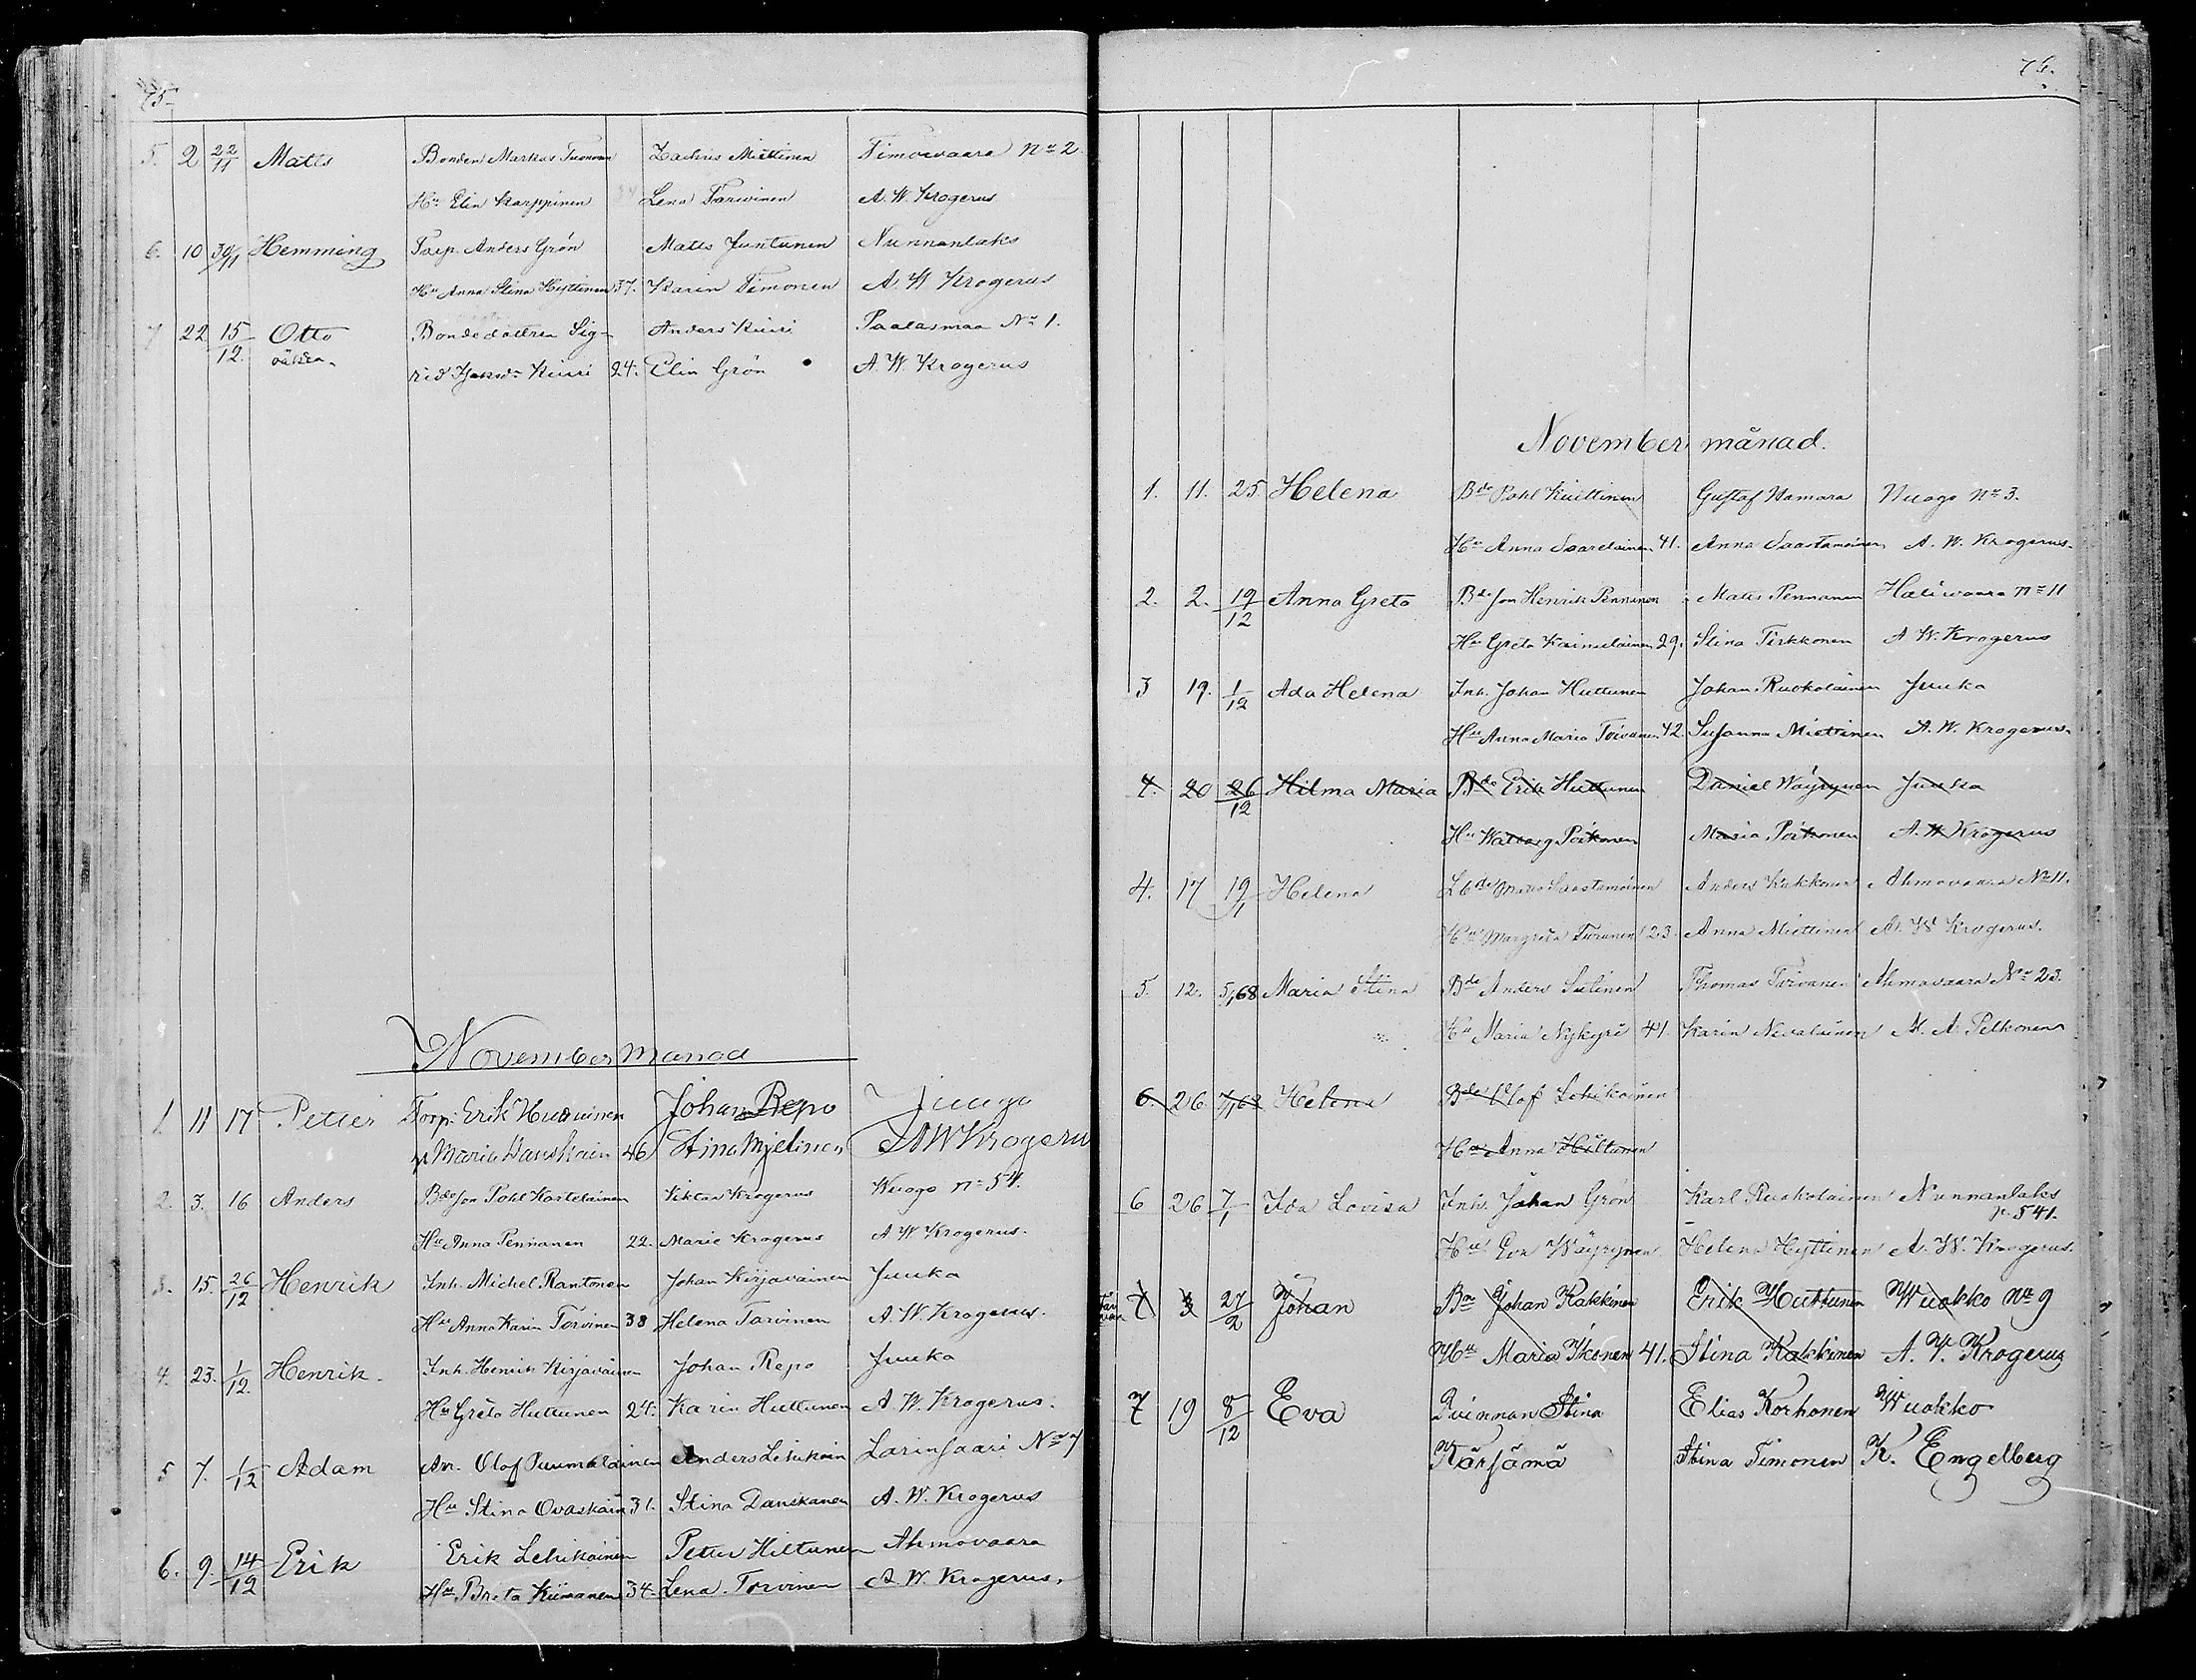 75.
5. 2 22/11 Matts Bonden Markus Tuononen Zachris Miettinen Timovaara No 2
Hu Elin Karppinen Lena Tarvinen A. W. Krogerus
6. 10 30/11 Hemming Torp. Anders Grön Matts Juntunen Nunnanlaks
Hu Anna Stina Hyttinen 37. Karin Timonen A. W. Krogerus
7 22 15/12. Otto Bondedottren Sig- Anders Kuiri Paalasmaa No 1.
oäkta. rid Kuiri 24. Elin Grön A. W. Krogerus
November månad
1. 11 17 Petter Torp. Erik Johan Repo Juuga
Maria 46 Stina A W Krogerus
2. 3. 16 Anders Bdeson Pohl Kortelainen Viktor Krogerus Wuogo no 54.
Hu Anna Pennanen 22. Marie Krogerus A W Krogerus.
3. 15. 26/12 Henrik Inh. Michel Rantonen Johan Kirjavainen Juuka
Hu Anna Karin Torvinen 38 Helena Tarvinen A. W. Krogerus.
4. 23. 1/12. Henrik. Inh. Henrik Kirjavainen Johan Repo Juuka
Hu Greta Huttunen 24. Karin Huttunen A. W. Krogerus.
5 7. 1/12 Adam Olof Puumalainen Anders Lehikoin Larinsaari No 7
Hu Stina Ovaskain 31. Stina Danskanen A. W. Krogerus
6. 9. 14/12 Erik Erik Lehikoinen Petter Hiltunen Ahmovaara
Hu Brita Kiimanen 34. Lena Torvinen A. W. Krogerus.
76.
November månad.
1. 11. 25. Helena Bde Pohl Kuittinen Gustaf Hamara Nuogo No 3.
Hu Anna Saarelainen 41. Anna Saastamoinen A. W. Krogerus.
2. 2. 19/12 Anna Greta Bdeson Henrik Pennanen Matts Pennanen Halivaara no 11
Hu Greta Kaimulainen 29. Stina Tirkkonen A W. Krogerus
3 19. 1/12 Ada Helena Inh. Johan Huttunen Johan Ruokolainen Juuka
Hu Anna Maria Toivanen 42. Susanna Miettinen A. W. Krogerus.
4. 20 26/12 Hilma Maria Bde Erik Huttunen Daniel Wäyrynen Juuka
Hu Walborg Poikonen Maria Poikonen A. W Krogerus
4. 17 19/1 Helena Saastamoinen Anders Kakkonen Ahmovaara No 11.
Hu Margreta Turunen 23. Anna Miettinen A. W Krogerus.
5. 12. 5/1 68 Maria Stina Bde Anders Sutinen Thomas Turvanen Ahmovaara No 23.
Hu Maria Nykyri 41. Karin Nevalainen A. A. Pelkonen
6. 26. Helena Bde Olof Lehikoinen
Hu Anna Hiltunen
6 26 7/1 Ida Lovisa Inh. Johan Grön Karl Ruokolainen Nunnanlaks
p. 541.
Hu Eva Wäyrynen Helena Hyttinen A. W. Krogerus.
7 3 27/2 Johan Bn Johan Kakkinen Erik Huttunen Wuokko No 9
Hu Maria Ikonen 41. Stina Kakkinen A. V. Krogerus
7 19 8/12 Eva Qvinnan Stina Elias Korhonen Wuokko
Kärsämä Stina Timonen K. Engelberg